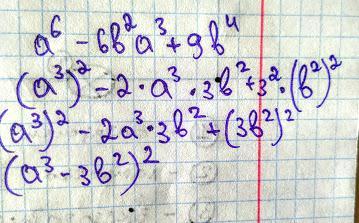 a⁶ - 6b²a³ + 9b⁴
(a³)² - 2·a³·3b² + 3²·(b²)²
(a³)² - 2a³·3b² + (3b²)²
(a³ - 3b²)²